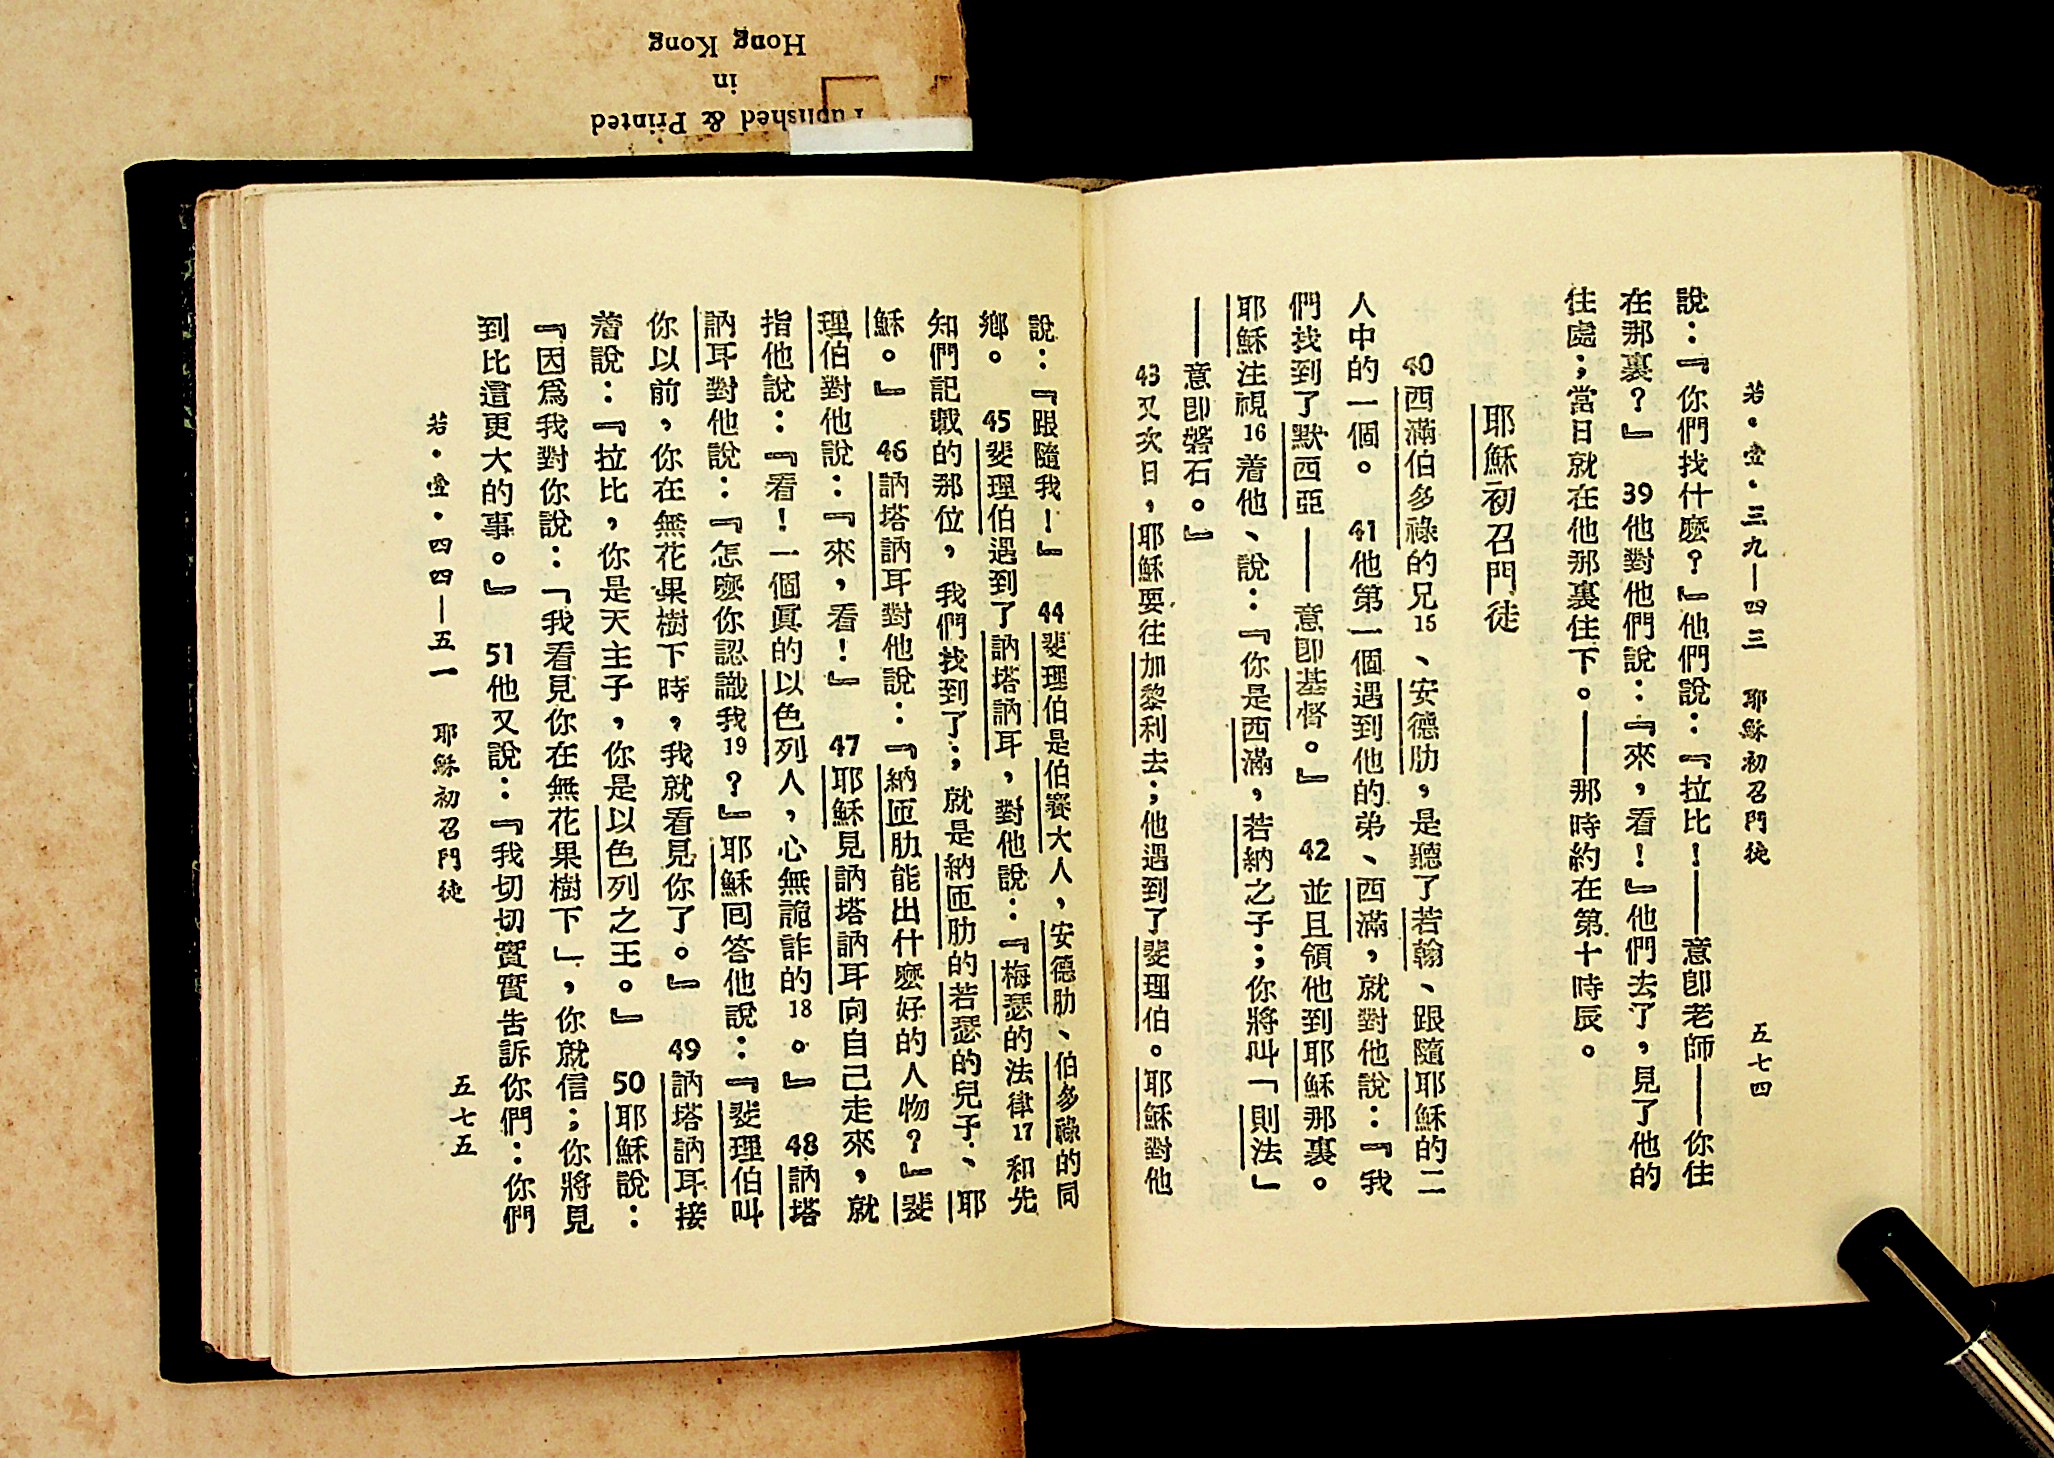 Published & Printed
in
Hong Kong
若・壹・三九—四三　耶穌初召門徒　五七四
說：『你們找什麽？』他們說：『拉比！——意即老師——你住
在那裏？』　39他對他們說：『來，看！』他們去了，見了他的
住處；當日就在他那裏住下。——那時約在第十時辰。
耶穌初召門徒
40西滿伯多祿的兄15、安德肋，是聽了若翰、跟隨耶穌的二
人中的一個。　41他第一個遇到他的弟、西滿，就對他說：『我
們找到了默西亞——意卽基督。』　42並且領他到耶穌那裏。
耶穌注視16着他、說：『你是西滿，若納之子；你將叫「則法」
——意卽磐石。』
43又次日，耶穌要往加黎利去；他遇到了斐理伯。耶穌對他
說：『跟隨我！』　44斐理伯是伯賽大人，安德肋、伯多祿的同
鄉。　45斐理伯遇到了訥塔訥耳，對他說：『梅瑟的法律17和先
知們記載的那位，我們找到了；就是納匝肋的若瑟的兒子、耶
穌。』　46訥塔訥耳對他說：『納匝肋能出什麽好的人物？』斐
理伯對他說：『來，看！』　47耶穌見訥塔訥耳向自己走來，就
指他說：『看！一個眞的以色列人，心無詭詐的18。』　48訥塔
訥耳對他說：『怎麽你認識我19？』耶穌囘答他說：『斐理伯叫
你以前，你在無花果樹下時，我就看見你了。』　49訥塔訥耳接
着說：『拉比，你是天主子，你是以色列之王。』　50耶穌說：
『因爲我對你說：「我看見你在無花果樹下」，你就信；你將見
到比這更大的事。』　51他又說：『我切切實實告訴你們：你們
若・壹・四四—五一　耶穌初召門徒　五七五